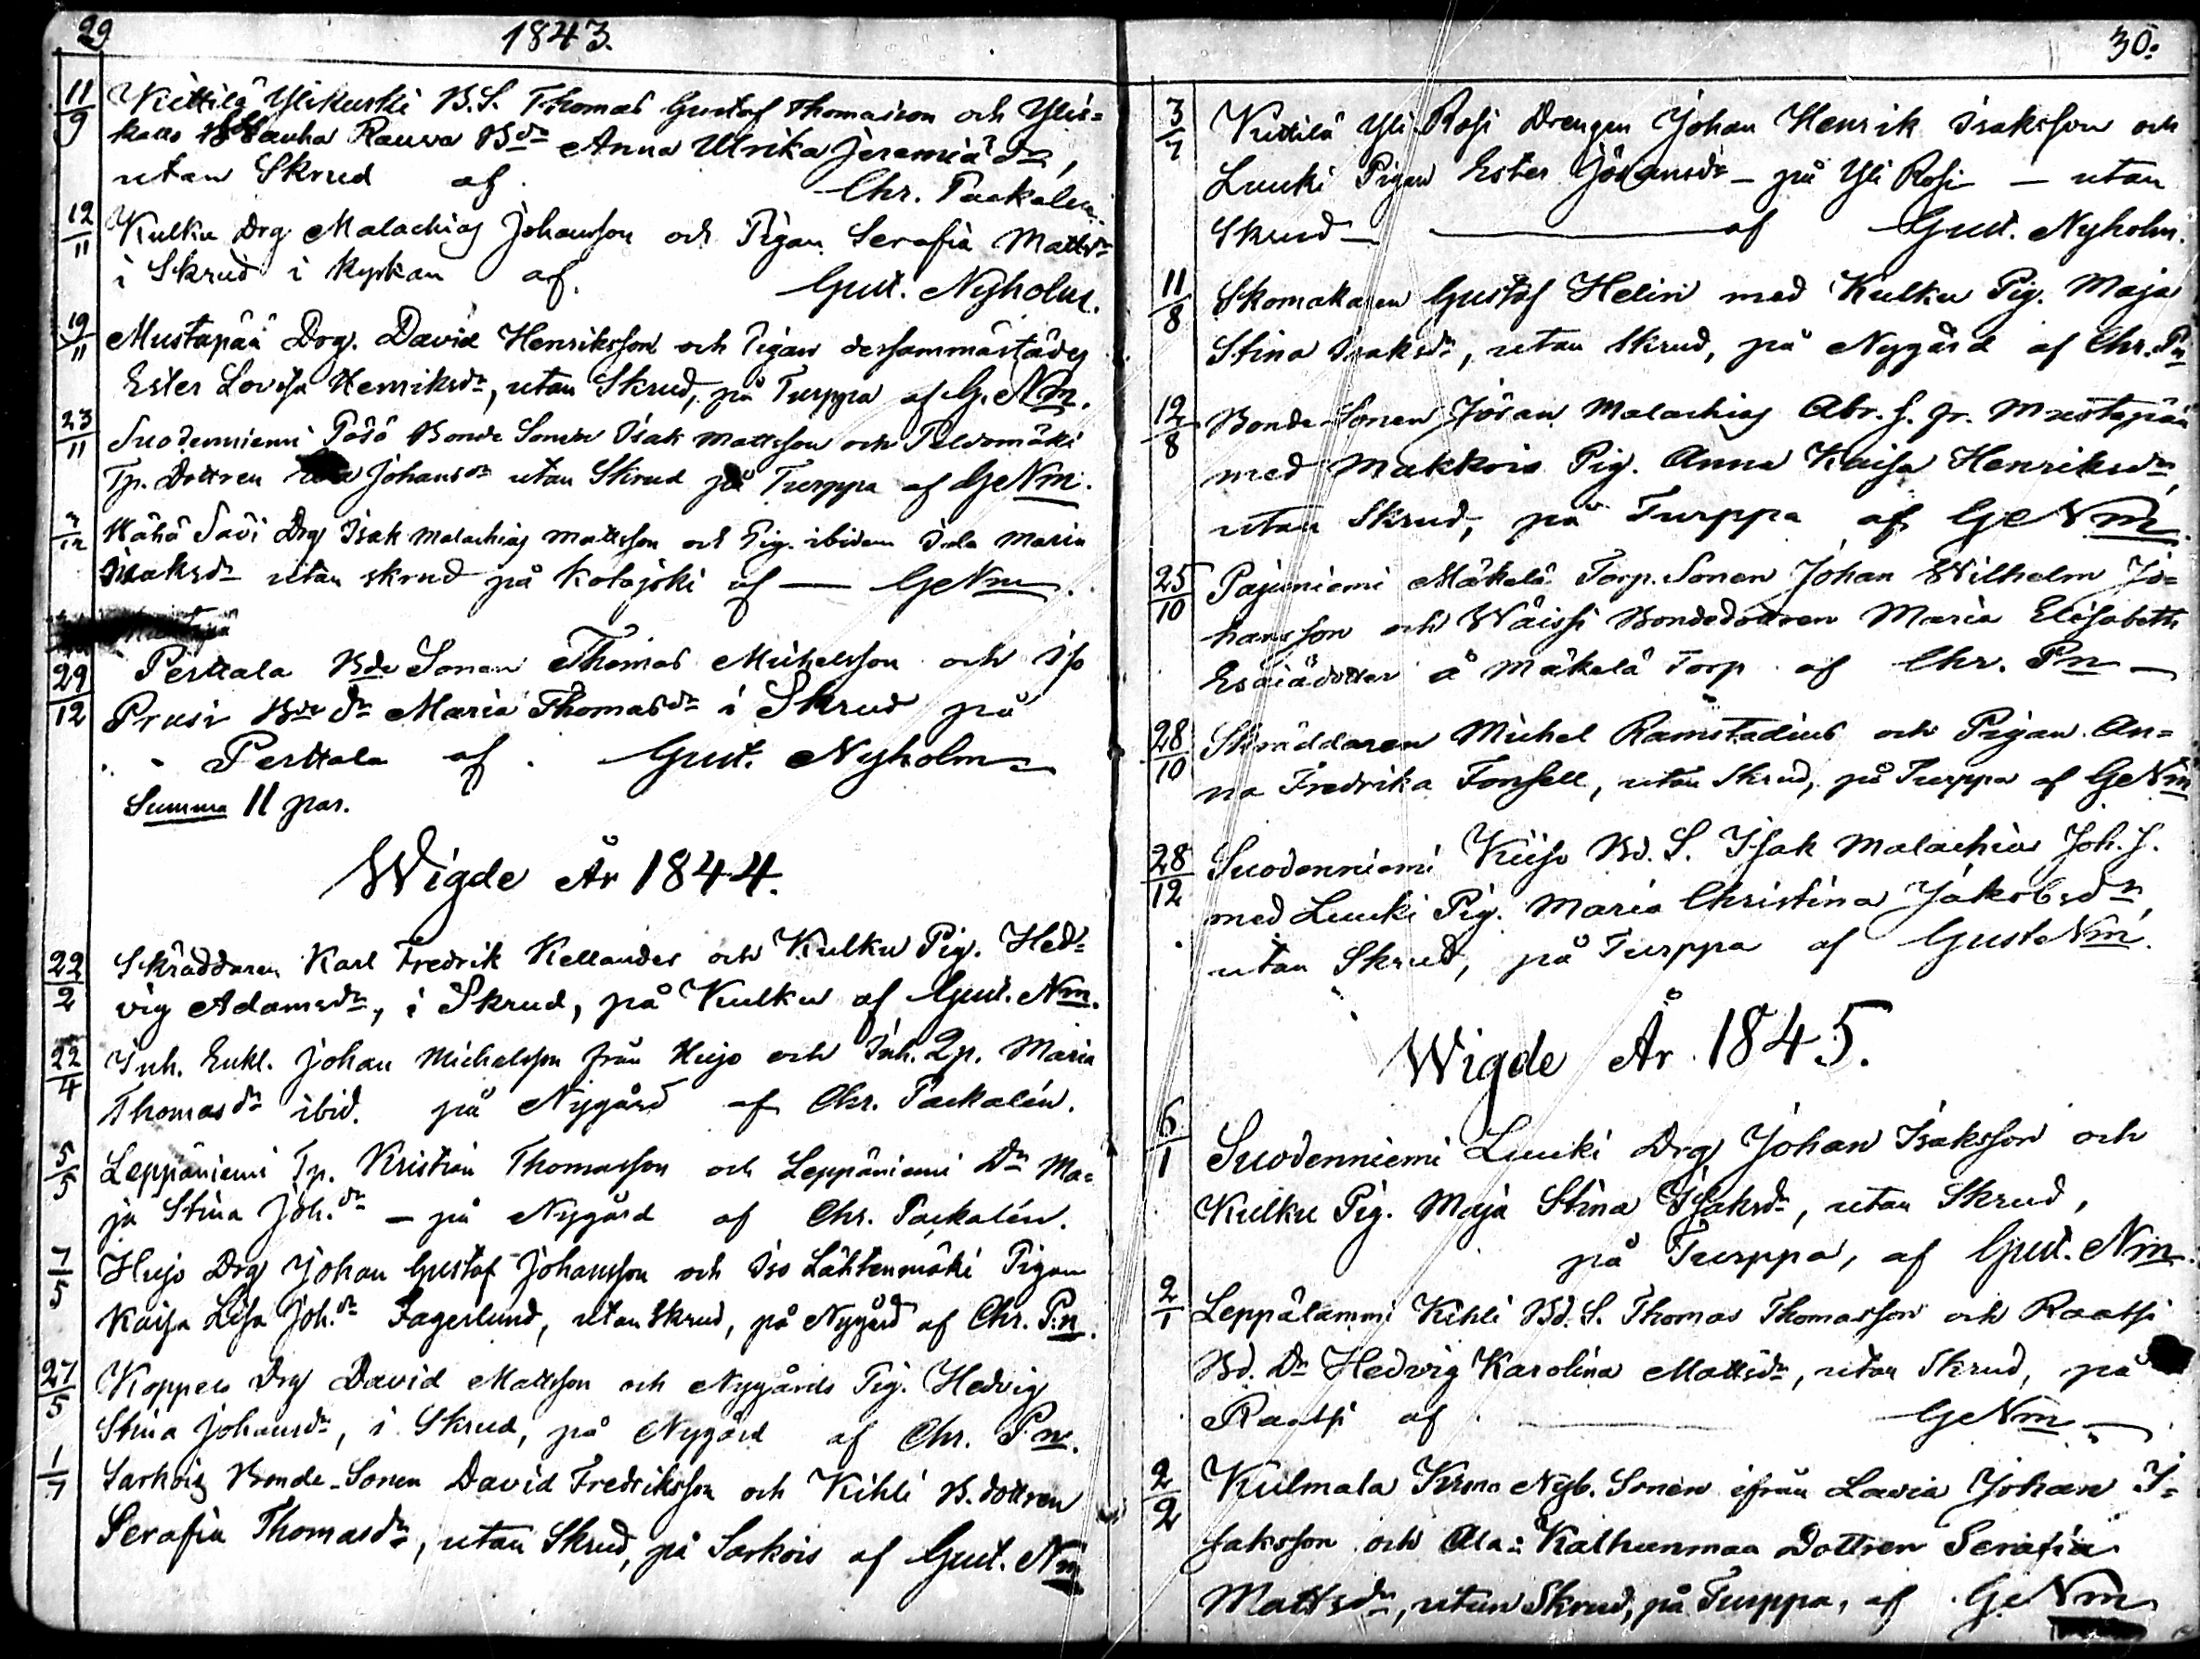 29
1843.
11/9 Kiettilä Ylikuski B.S. Thomas Gustaf Thomasson och Ylis=
Rauva Bdr Anna Ulrika Jeremiäds,
utan Skrud af. Chr. Packalén.
12/11 Kulku Drg Malachias Johansson och Pigan Serafia Mattsdr
i Skrud i kyrkan af. Gust. Nyholm.
19/11 Mustapää Drg. David Henriksson och Pigan dersammastädes
Ester Lovisa Henriksdr, utan Skrud, på Turppa af G. Nm.
23/11 Suodenniemi Pösö Bonde Sonen Isak Mattsson och Peldomäki
Tp. Dottren Johansdr utan Skrud på Turppa af GeNm.
Wähä Savi Drg Isak Malachias Mattsson och Pig. ibidem Ida Maria
Isaksdr utan skrud på Kotajoki af — GeNm.
29/12 Perttala Bde Sonen Thomas Michelsson och Iso
Prusi Bde dr Maria Thomasdr i Skrud på
Perttala af. Gust. Nyholm
Summa 11 par.
Wigde År 1844.
22/2 Skräddaren Karl Fredrik Kellander och Kulku Pig. Hed=
vig Adamsdr, i Skrud, på Kulku af Gust. Nm.
22/4 Inh. Enkl. Johan Michelsson från Hujo och Inh. Qp. Maria
Thomasdr ibid. på Nygård af Chr. Packalén.
5/5 Leppäniemi Tp. Kristian Thomasson och Leppäniemi Dr Ma=
ja Stina Joh.dr — på Nygård af Chr. Packalén.
7/5 Hujo Drg Johan Gustaf Johansson och Iso Lähtenmäki Pigan
Kaisa Lisa Joh.dr Fagerlund, utan Skrud, på Nygård af Chr. P:n.
27/5 Koppelo Drg David Mattsson och Nygårds Pig. Hedvig
Stina Johansdr, i Skrud, på Nygård af Chr. Pn.
1/7 Sarkois Bonde-Sonen David Fredriksson och Kihli B. dottren
Serafia Thomasdr, utan Skrud, på Sarkois af Gust. Nm
30.
3/7 Kittilä Yli Rosi Drengen Johan Henrik Isaksson och
Luuki Pigan Ester Göransdr — på Yli Rosi — utan
Skrud — af Gust. Nyholm.
11/8 Skomakaren Gustaf Helin med Kulku Pig. Maja
Stina Isaksdr, utan Skrud, på Nygård af Chr. Pn
12/8 Bonde-Sonen Jöran Malachias Abr. S. fr. Mustapää
med Makkois Pig. Anna Kaisa Henriksdr,
utan Skrud, på Turppa af GeNm
25/10 Pajuniemi Mäkelä Torp. Sonen Johan Wilhelm Jo=
hansson och Wäissi Bondedottren Maria Elisabeth
Esaiädotter å Mäkelä Torp af Chr. Pn —
28/10 Skräddaren Michel Ramstadius och Pigan An=
na Fredrika Fonsell, utan Skrud, på Turppa af GeNm
28/12 Suodenniemi Kiiso Bd. S. Isak Malachias Joh. S.
med Luuki Pig. Maria Christina Jakobsdr,
utan Skrud, på Turppa af GusteNm.
Wigde År 1845.
6/1 Suodenniemi Luuki Drg Johan Isaksson och
Kulku Pig. Maja Stina Isaksdr, utan Skrud,
på Turppa, af Gust. Nm.
2/1 Leppälammi Kihli Bd. S. Thomas Thomasson och Raatsi
Bd. Dr Hedwig Karolina Mattsdr, utan Skrud, på
Raatsi af GeNm —
2/2 Kulmala Krono Nyb. Sonen ifrån Lavia Johan I=
saksson och Ala Kalhunmaa Dottren Serafia
Mattsdr, utan Skrud, på Turppa, af GeNm